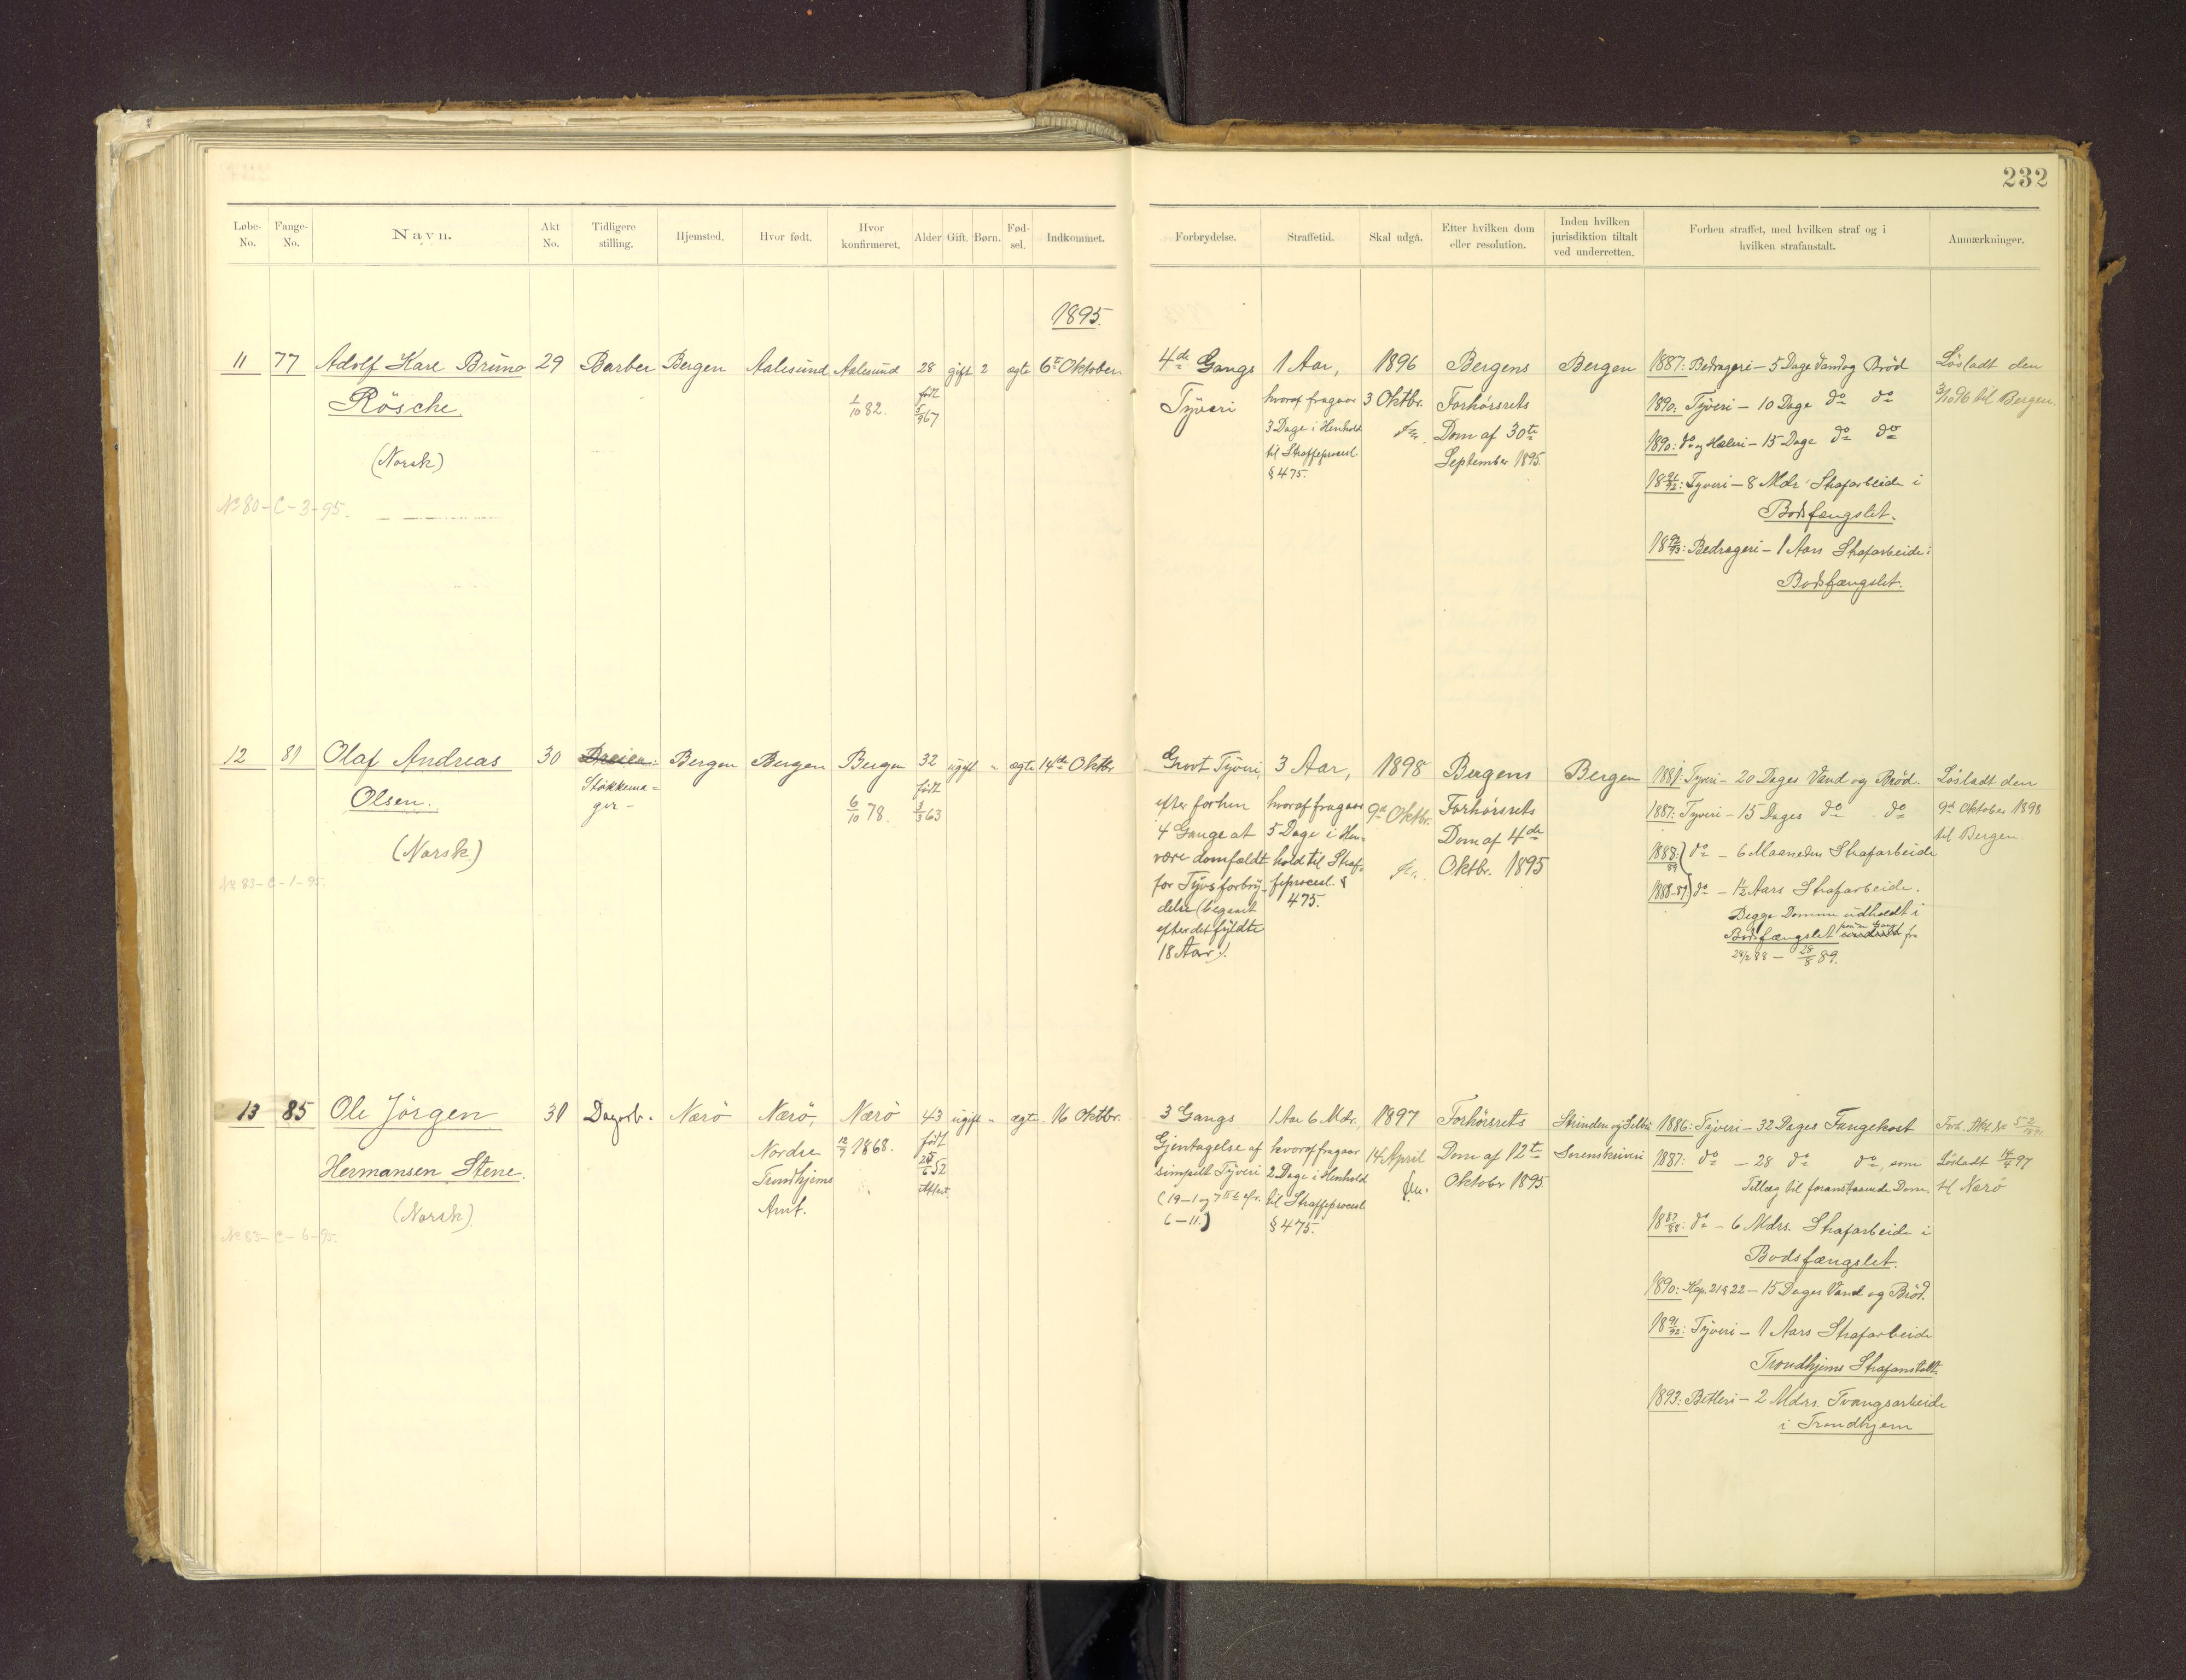 232
Løbe-No.
Fange-No.
Navn.
Akt No.
Tidligere stilling.
Hjemsted.
Hvor født.
Hvor konfirmeret.
Alder
Gift.
Børn.
Fød-sel.
Indkommet.
Forbrydelse.
Straffetid.
Skal udgå.
Efter hvilken dom eller resolution.
Inden hvilken jurisdiktion tiltalt ved underretten.
Forhen straffet, med hvilken straf og i hvilken strafanstalt.
Anmærkninger.
1895.
11
77
Adolf Karl Bruno
Rösche.
(Norsk)
No 80-C-3-95.
29
Barber
Bergen
Aalesund
Aalesund
1/10 82.
28
født
5/9 67
gift
2
ægte
6te Oktober
4de Gangs
Tyveri
1 Aar,
hvoraf fragaar
3 Dage i Henhold
til Straffeprocesl.
§ 475.
1896
3 Oktbr.
Bergens
Forhørsrets
Dom af 30te
September 1895.
Bergen
1887: Bedrageri - 5 Dage Vand og Brød
1890: Tyveri - 10 Dage do do
1890: do og Hæleri - 15 Dage do do
18 91/92: Tyveri - 8 Mdr Strafarbeide i
Bodsfængslet.
18 92/93: Bedrageri - 1 Aars Strafarbeide i
Bodsfængslet.
Løsladt den
3/10 96 til Bergen.
12
81
Olaf Andreas
Olsen.
(Norsk)
No 83-C-1-95.
30
Støkkema=
ger -
Bergen
Bergen
Bergen
6/10 78.
32
født
3/3 63
ugift
"
ægte
14de Oktbr
Grovt Tyveri,
efter forhen
4 Gange at
være domfældt
for Tyvsforbry-
delse (begaaet
efter det fyldte
18 Aar).
3 Aar,
hvoraf fragaar
5 Dage i Hen-
hold til Straf-
feprocesl. §
475.
1898
9de Oktbr.
Bergens
Forhørsrets
Dom af 4de
Oktbr. 1895
Bergen
1881: Tyveri - 20 Dages Vand og Brød.
1887: Tyveri - 15 Dages do do
1888/89) do - 6 Maaneders Strafarbeide
1888-89) do - 1½ Aars Strafarbeide.
Begge Domme udholdt i
Bodsfængslet fra
24/2 88 - 28/8 89.
Løsladt den
9de Oktober 1898
til Bergen
13
85
Ole Jörgen
Hermansen Stene.
(Norsk)
No 83-C-6-95.
31
Dagarb.
Nærö
Nærö,
Nordre
Trondhjems
Amt.
Nærö
12/7 1868.
43
født
25/6 52
Attest
ugift
"
ægte
16 Oktbr.
3 Gangs
Gjentagelse af
simpelt Tyveri
(19-1 og 7 cfr.
6-11.)
1 Aar 6 Mdr.,
hvoraf fragaar
2 Dage i Henhold
til Straffeprocesl.
§ 475.
1897
14 April
Forhørsrets
Dom af 12te
Oktober 1895
Strinden og Selbu
Sorenskriveri
1886: Tyveri - 32 Dages Fangekost
1887: do - 28 do do, som
Tillæg til foranstaaende Dom.
18 87/88: do - 6 Mdrs. Strafarbeide i
Bodsfængslet.
1890: Kap. 21 § 22 - 15 Dages Vand og Brød.
18 91/92: Tyveri - 1 Aars Strafarbeide
Trondhjems Strafanstalt.
1893: Betleri - 2 Mdrs. Tvangsarbeide
i Trondhjem
Forh. Akt No 52/1891
Løsladt 14/4 97
til Nærö